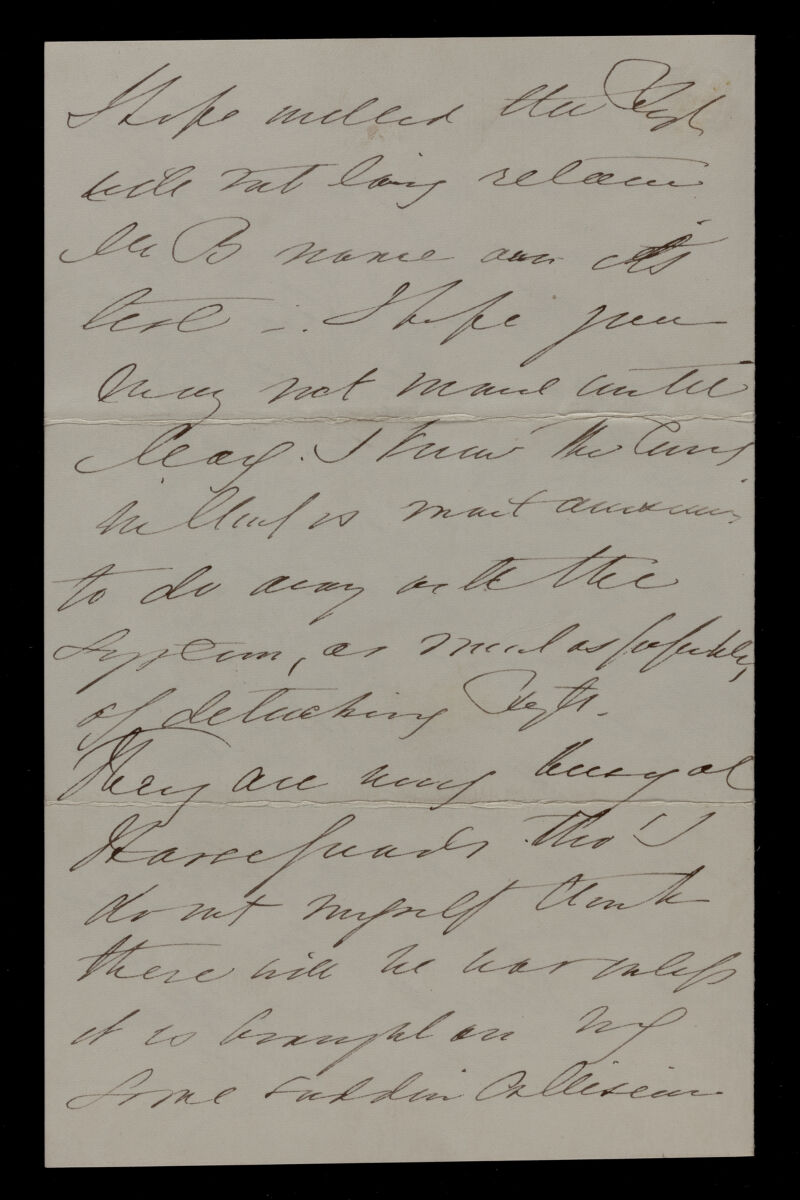 I hope indeed the Regt
will not long retain
Mr B name on its
list –. I hope you
may not move until
May. I know the Comg
in Chief is most anxious
to do away with the
system, as much as possible,
of detaching Regts.
They are very busy at
Horse Guards tho' I
do not myself think
there will be war unless
it is brought on by
some sudden Collision